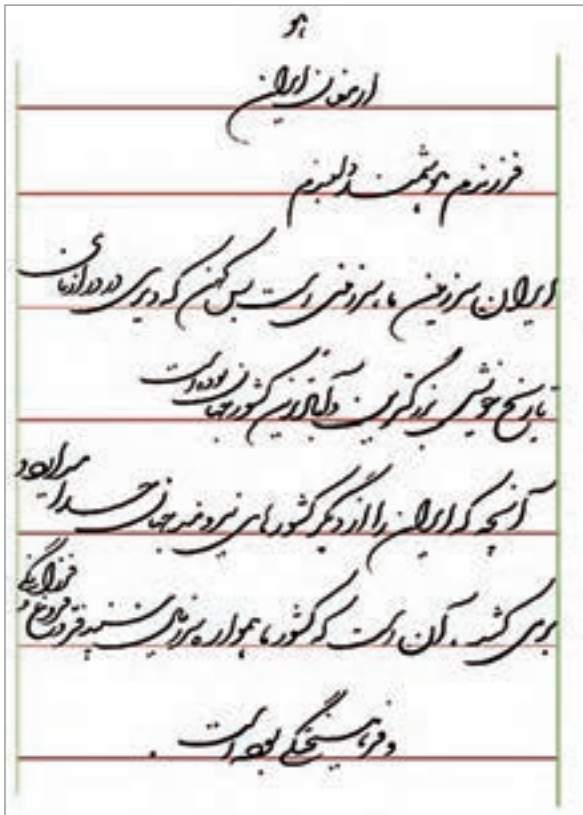 هو
ارمغان ایران
فرزندم هوشمند دلبندم
ایران سرزمین ما، سرزمینی است بس کهن که دیری در درازنای
تاریخ خویش بزرگترین و آبادترین کشور جهان بوده است
آنچه که ایران را از دیگر کشورهای نیرومند جهان جدا میدارد و
برمی کشد. آن است که کشور ما همواره سرزمین سپند فروغ و فرزانگی
و فرهیختگی بوده است.